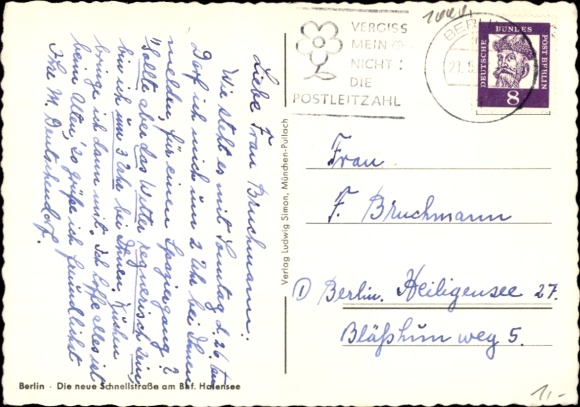 Liebe Frau Bruchmann.
Wie steht es mit Sonntag d. 26ten
Darf ich mich um 2 Uhr bei Ihnen
melden, für einen Spaziergang?
Sollte aber das Wetter regnerisch sein,
bin ich um 3 Uhr bei Ihnen, Kuchen
bringe ich dann mit. Ich hoffe alles ist
beim Alten, so grüße ich herzlichst
Ihre M. Deutschendorf.
VERGISS
MEIN
NICHT:
DIE
POSTLEITZAHL
BERLIN
21.
DEUTSCHE BUNDES
POST BERLIN
8
Verlag Ludwig Simon, München-Pullach
Frau
F. Bruchmann
① Berlin. Heiligensee 27.
Bläßhuhn weg 5.
Berlin · Die neue Schnellstraße am Bhf. Halensee
1,-